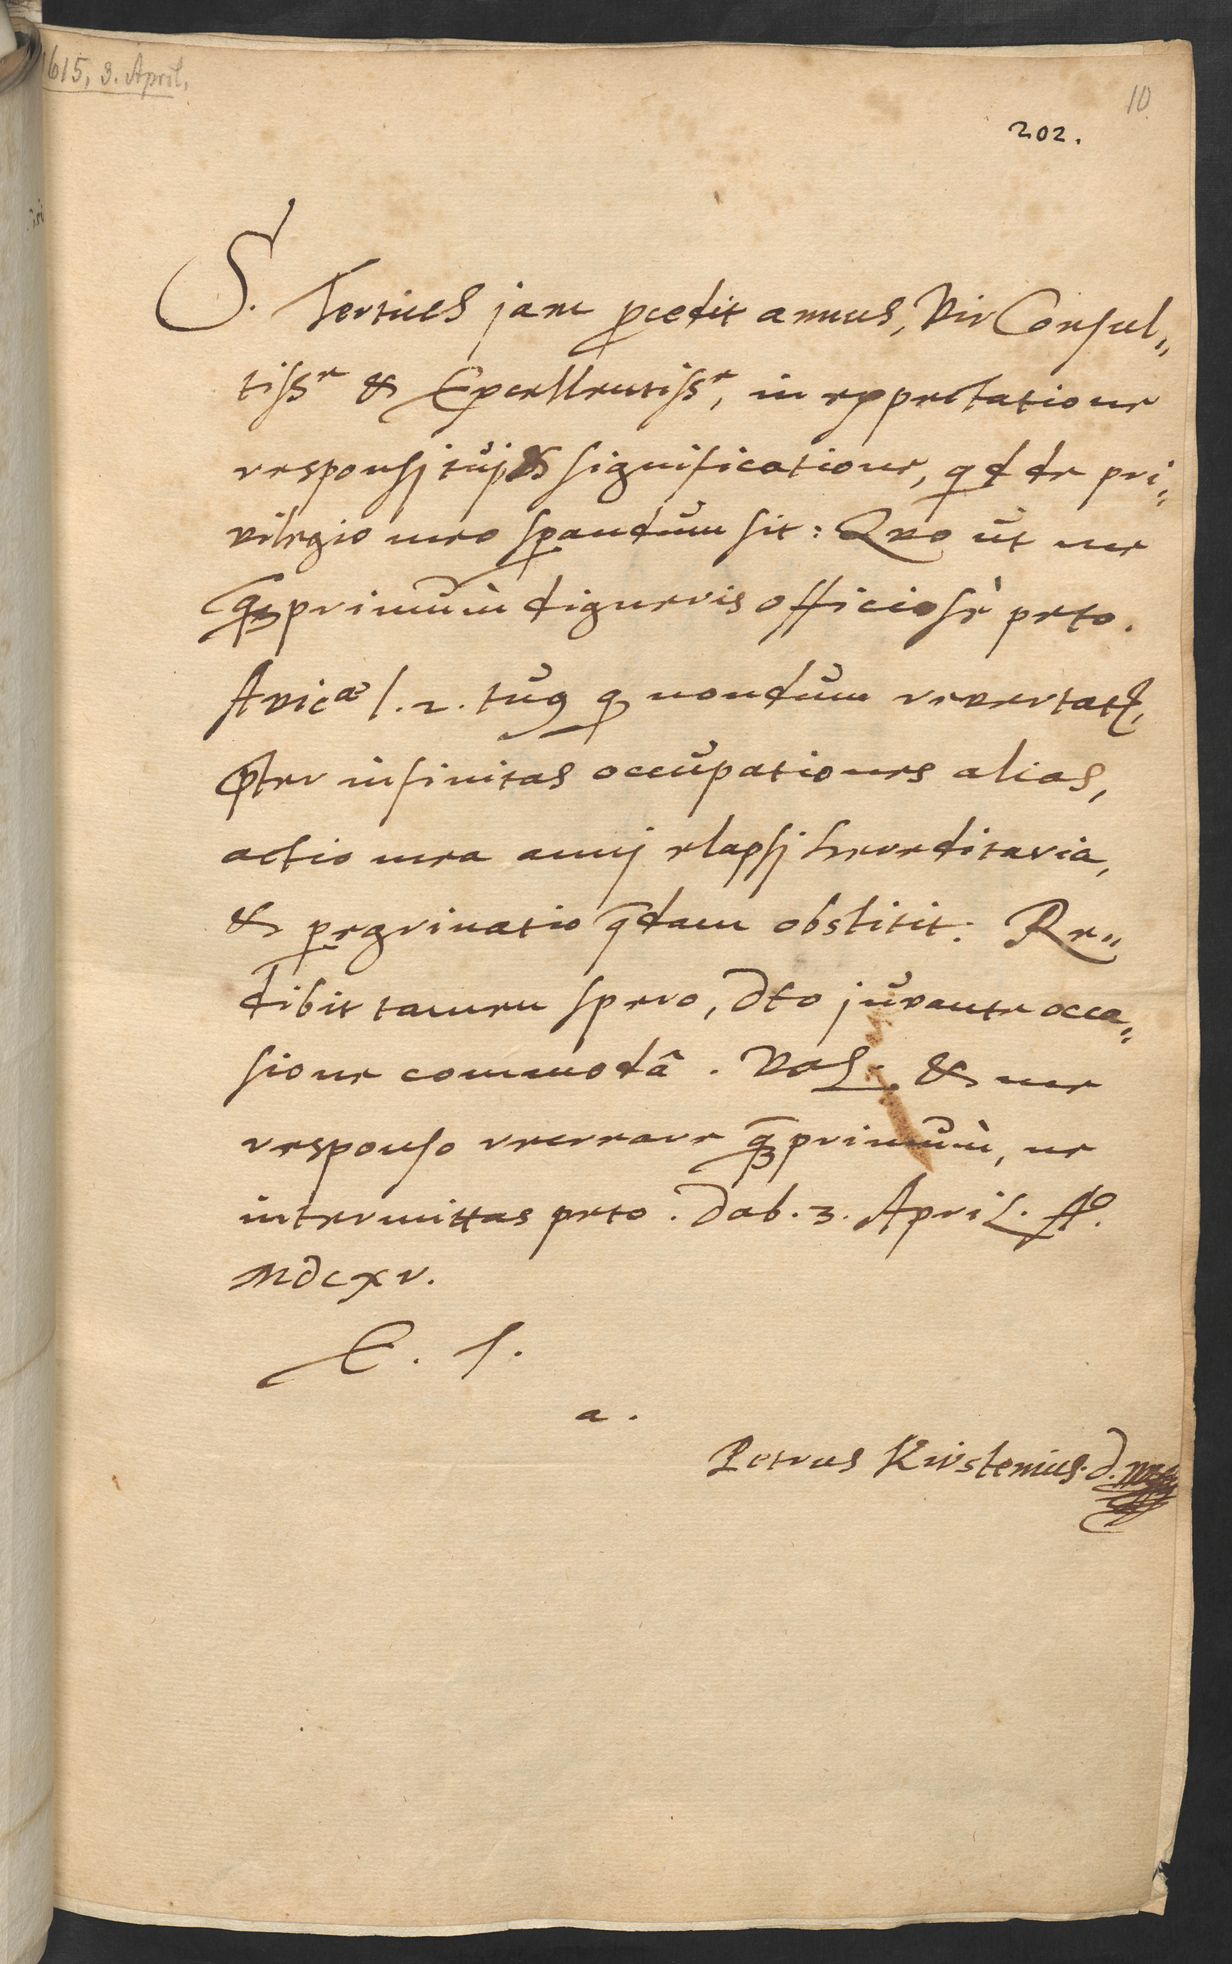 1615, 3. April.
10
202.
S. Tertius jam procedit annus, Vir Consul„
tiss.e & Excellentiss.e, in expectatione
responsj tuj & significatione, quid de pri„
vilegio meo sperandum sit: Quo ut me
quamprimùm digneris officiosè peto.
Avicae l. 2. tuus quod nondum revertatur,
praeter infinitas occupationes alias,
actio mea annj elapsj hereditaria,
& peregrinatio quaedam obstitit: Re„
dibit tamen spero, Deo juvante occa„
sione commodâ. Vale & me
responso recreare quamprimùm, ne
intermittas peto. Dab. 3. April. Ao.
MDCXV.
E. T.
a.
Petrus Kirstenius. D.